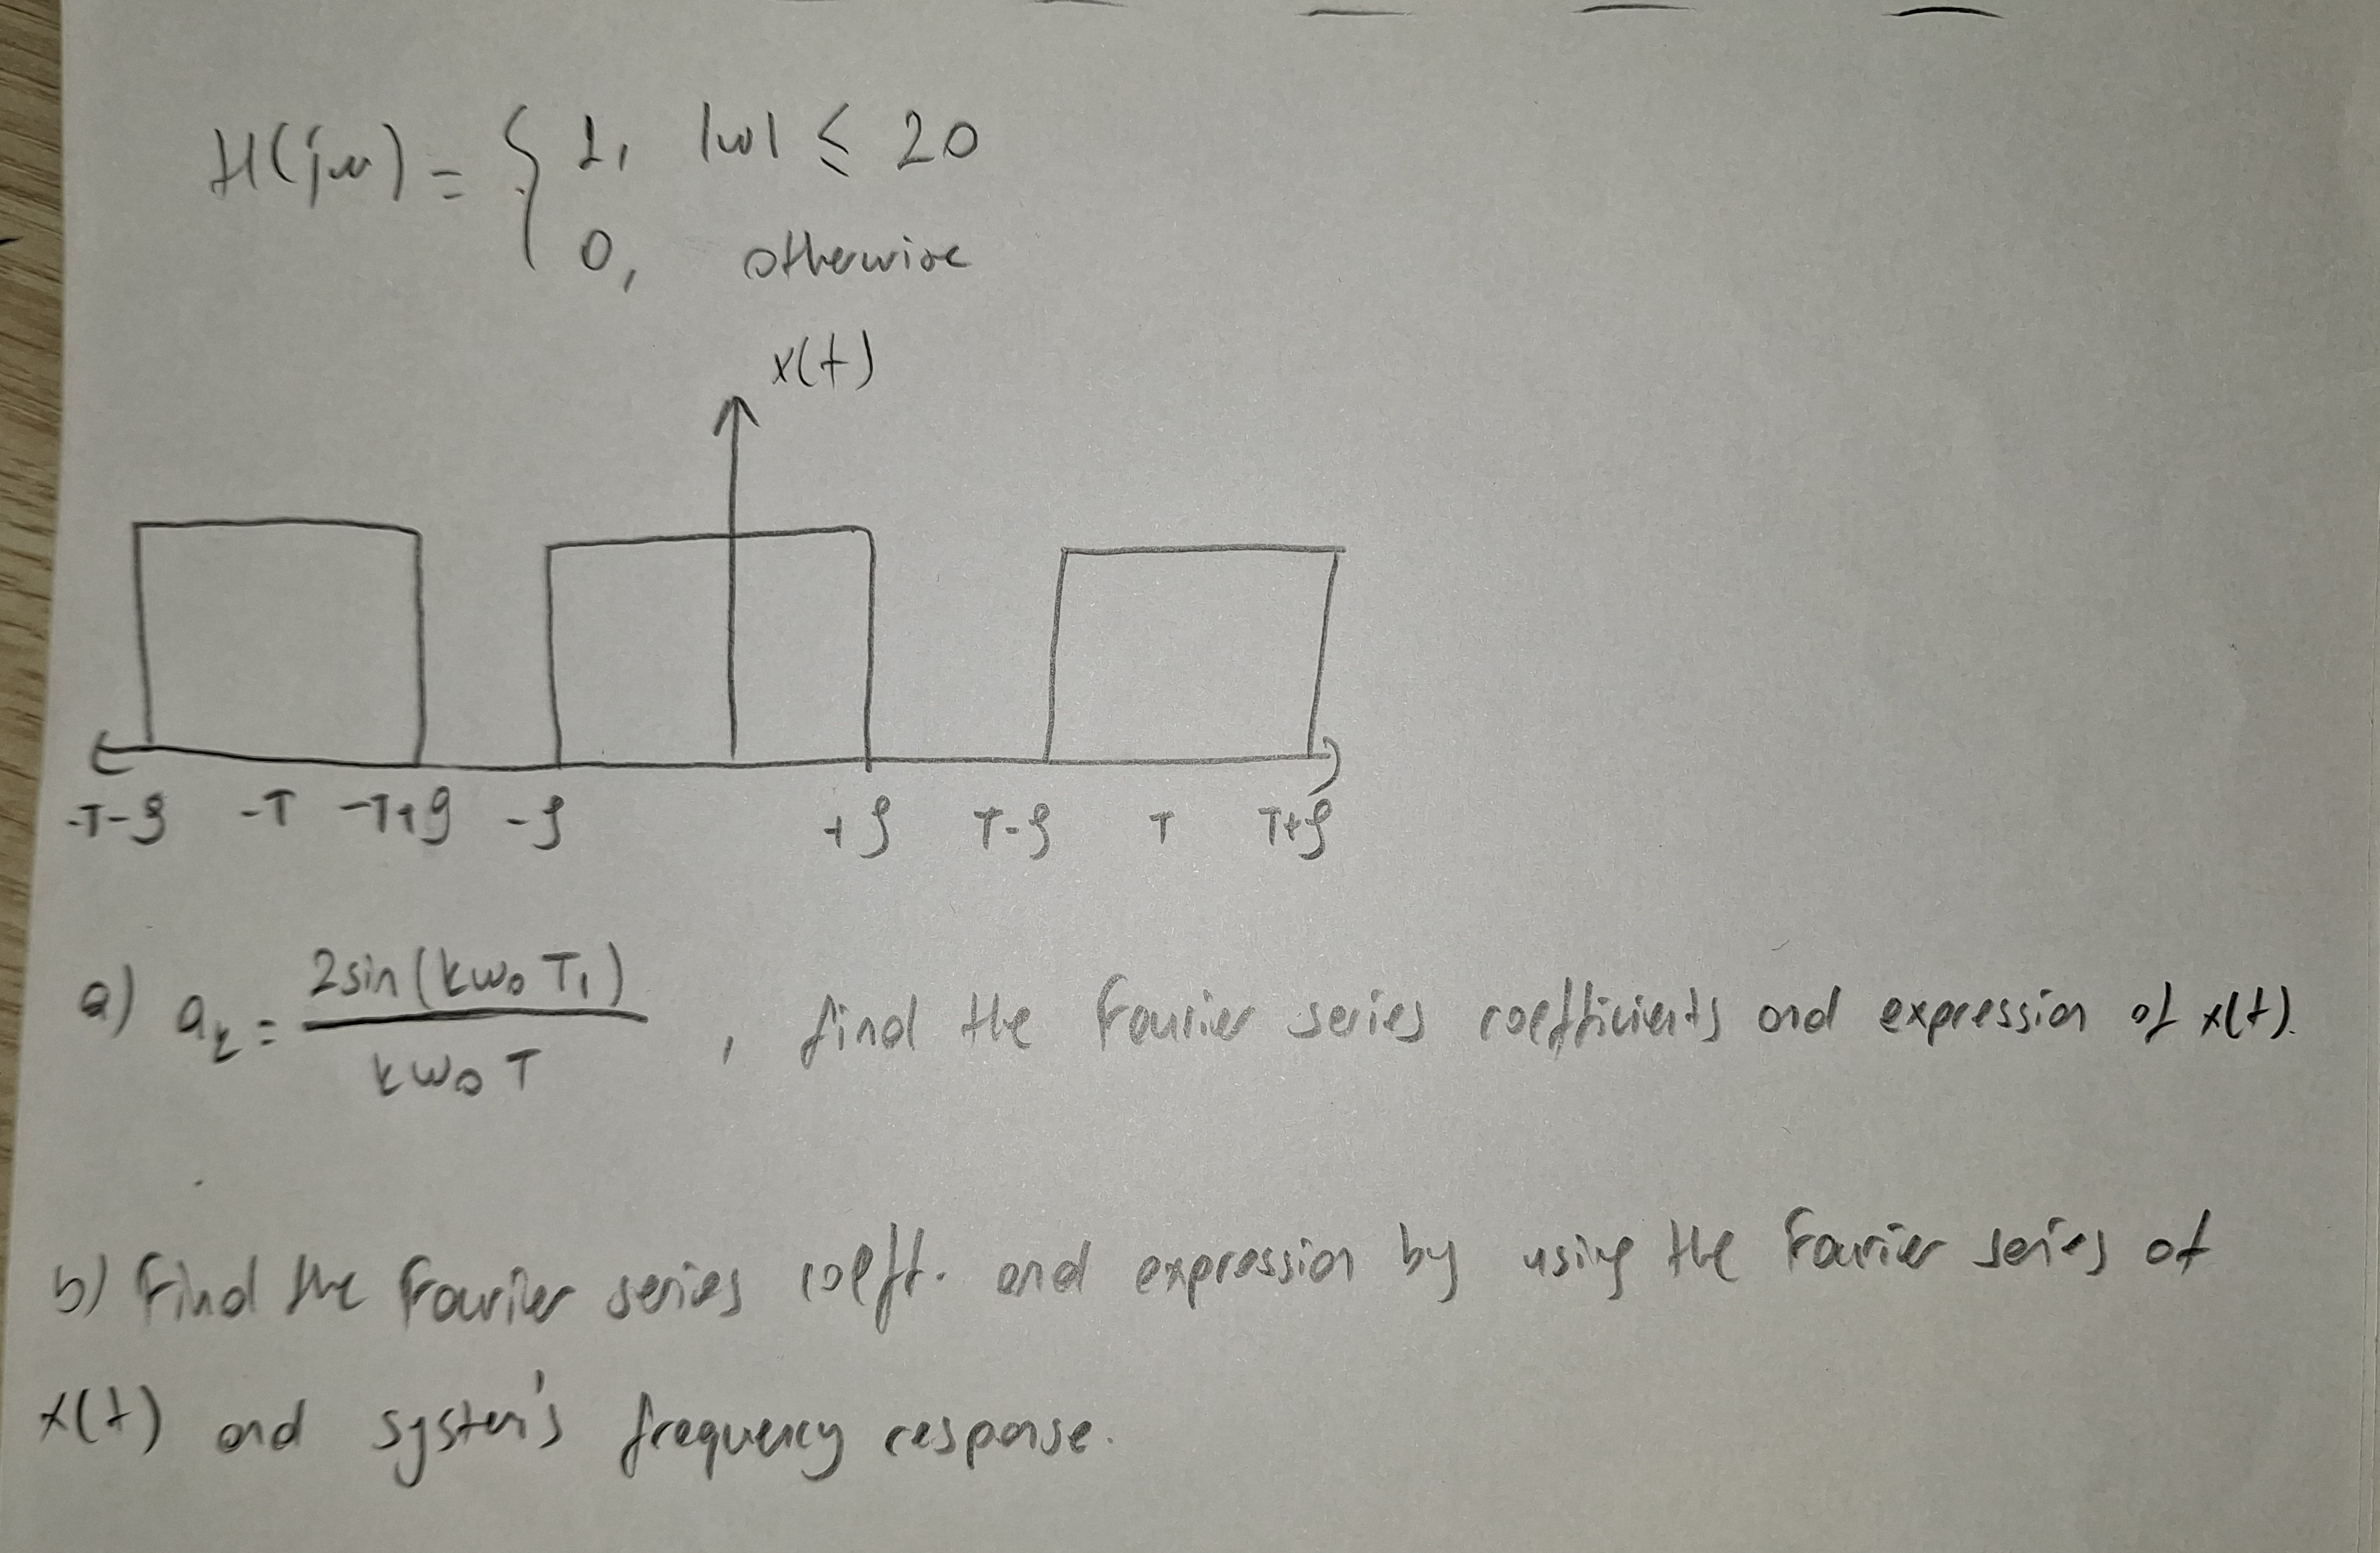 H(jw) = { 1, |w| ≤ 20
0, otherwise
x(t)
-T-ϱ -T -T+ϱ -ϱ +ϱ T-ϱ T T+ϱ
a) a_k = 2sin(kw₀T₁) / kw₀T , find the Fourier series coefficients and expression of x(t).
b) Find the Fourier series coeff. and expression by using the Fourier series of
x(t) and system's frequency response.